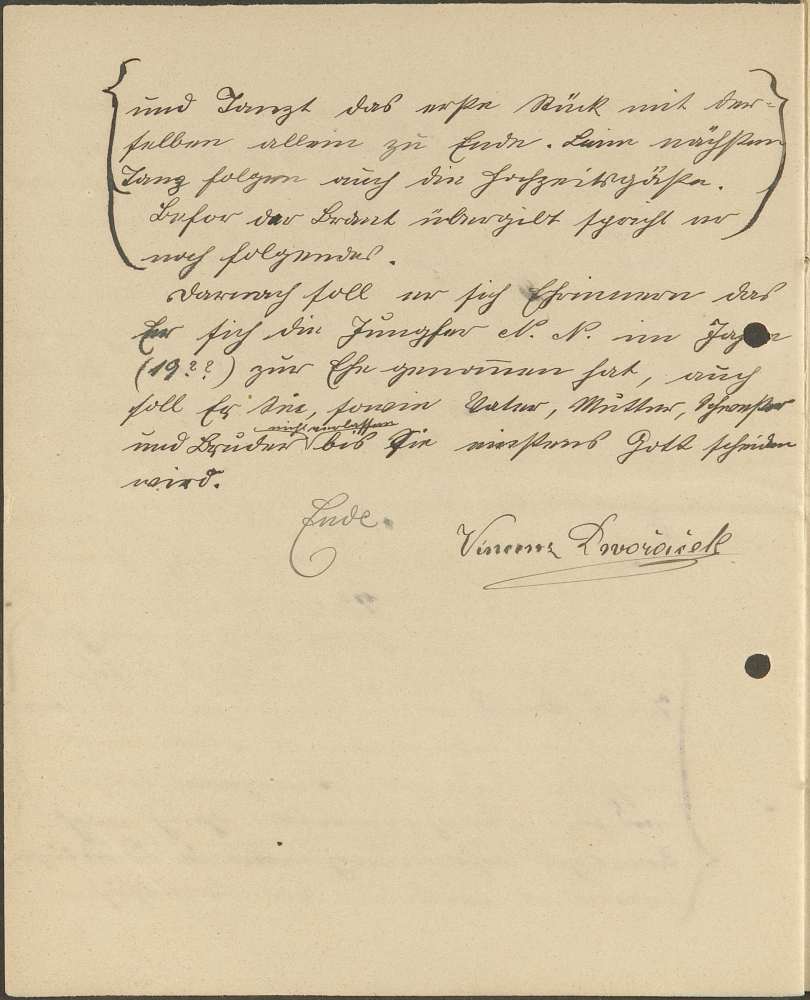 und Tanzt das erste Stück mit der=
selben allein zu Ende. Beim nächsten
Tanz folgen auch die Hochzeitsgäste.
Befor der Braut übergibt spricht er
noch folgendes.
Darnach soll er sich Ehrinnern das
Er sich die Jungfer N. N. im Jahre
(19??) zur Ehe genom̄en hat, auch
soll Er Sie, sowie Vater, Mutter, Schwester
nicht verlassen
und Bruder bis Sie einstens Gott scheiden
wird.
Ende.
Vincenz Dvořáček